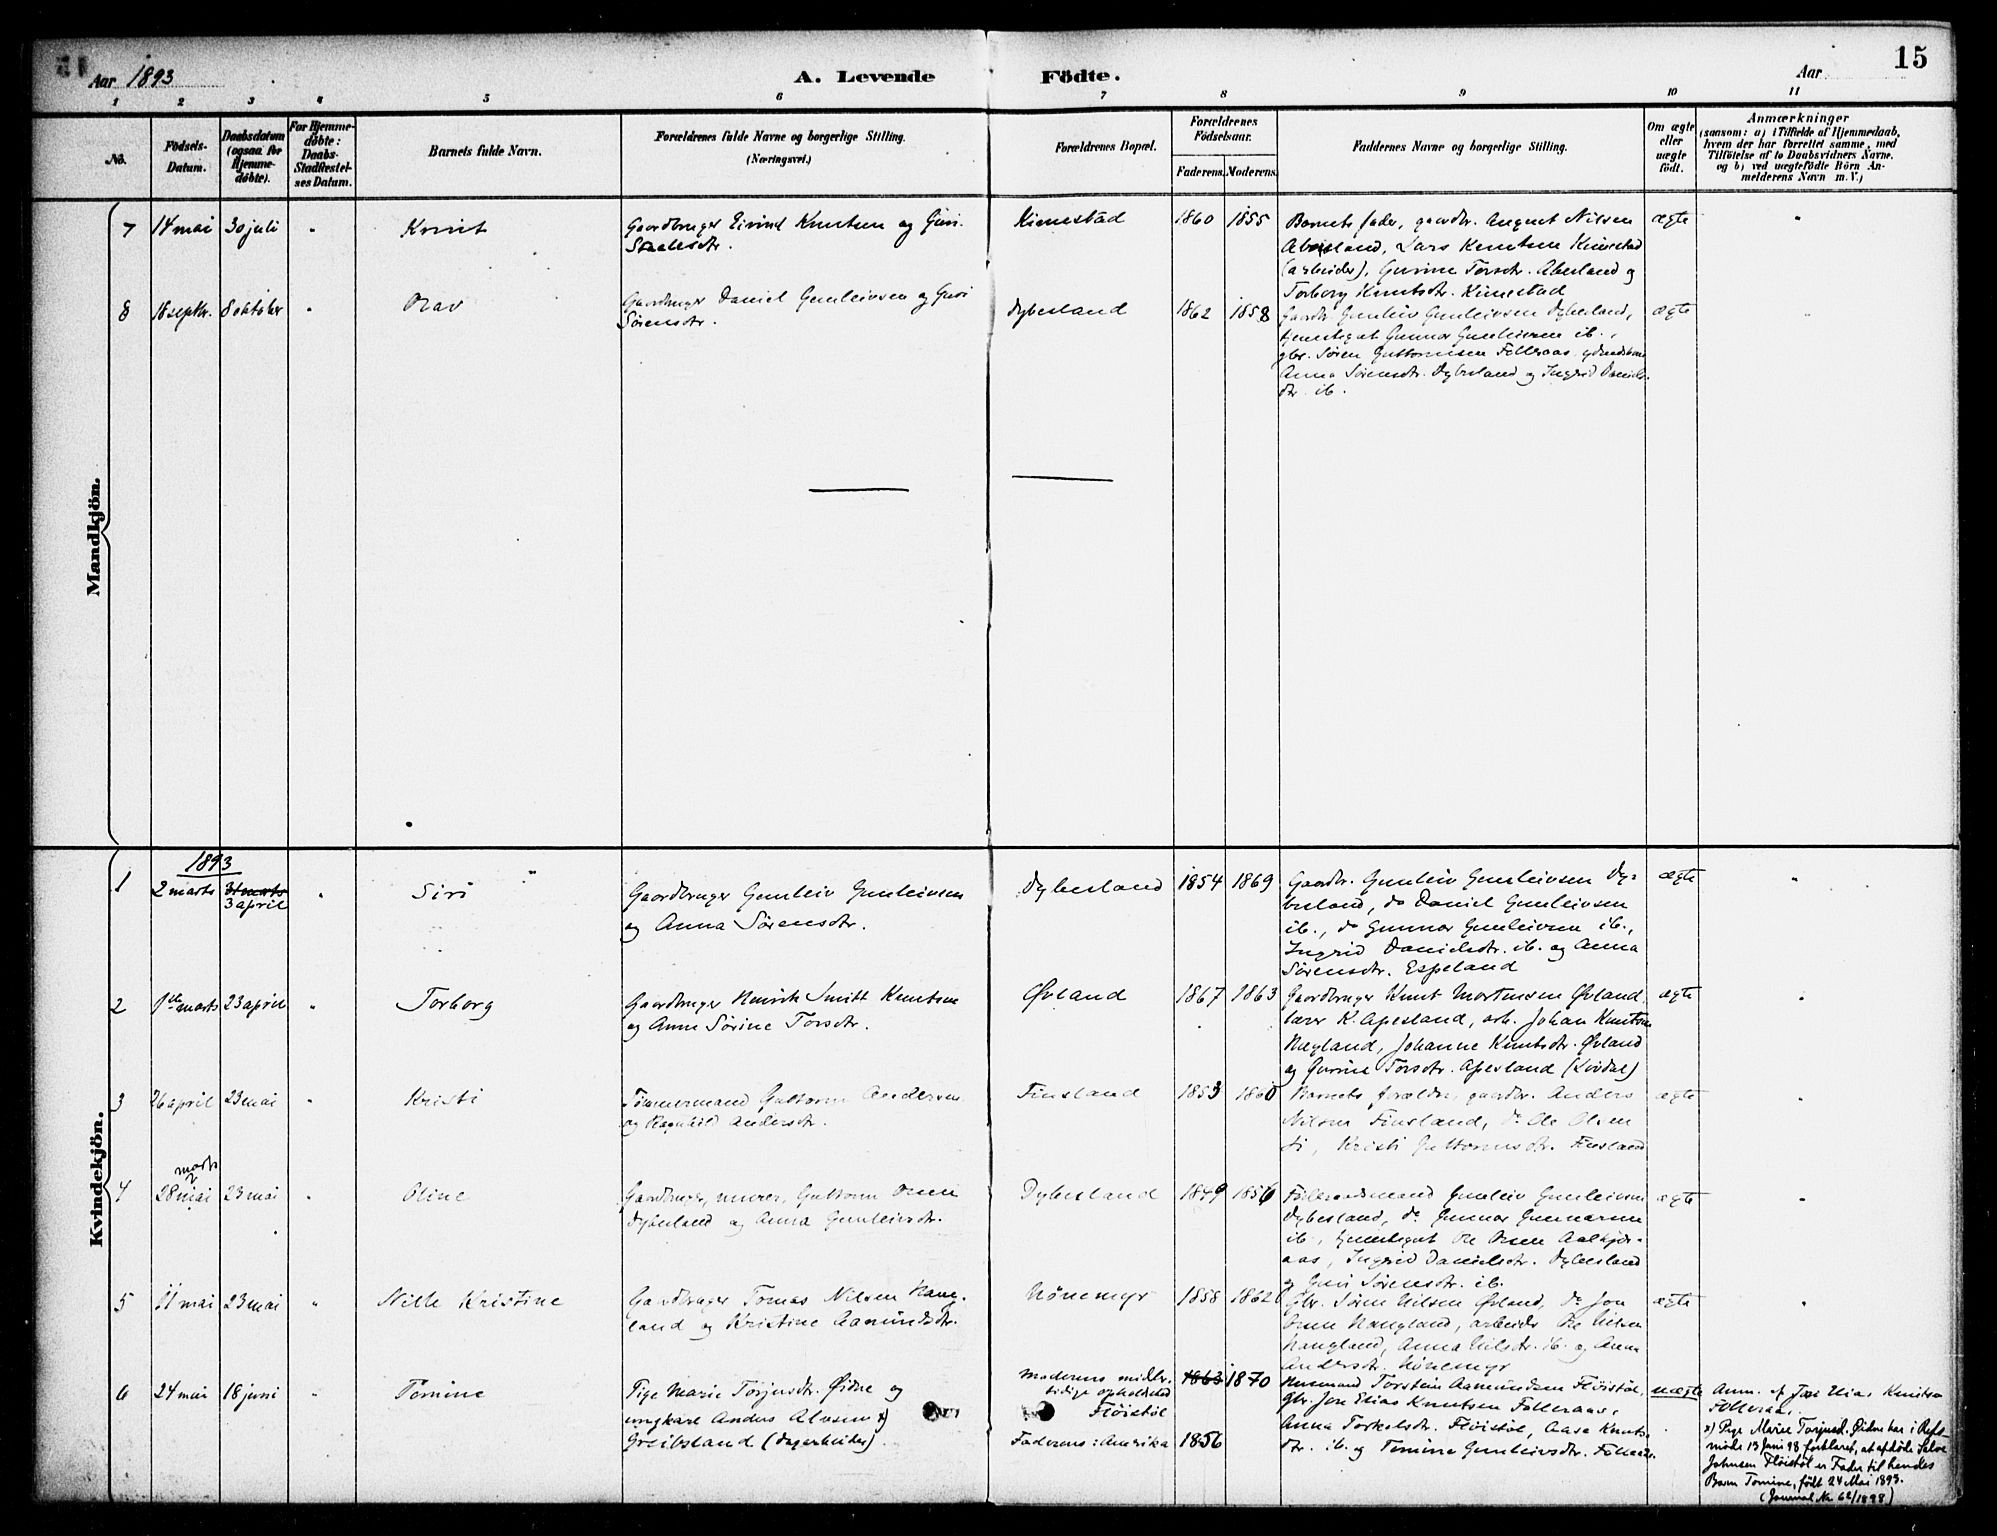 Aar 1893
A. Levende
Födte.
Aar
15
1 2 3 4 5 6 7 8 9 10 11
No.
Födsels-
Datum.
Daabsdatum
(ogsaa for
Hjemme-
døbte).
For Hjemme-
døbte:
Daabs-
Stadfæstel-
ses Datum.
Barnets fulde Navn.
Forældrenes fulde Navne og borgerlige Stilling.
(Næringsvei.)
Forældrenes Bopæl.
Forældrenes
Födselsaar.
Faderens. Moderens.
Faddernes Navne og borgerlige Stilling.
Om ægte
eller
uægte
födt.
Anmærkninger
(saasom: a) i Tilfælde af Hjemmedaab,
hvem der har forrettet samme, med
Tilföielse af to Daabsvidners Navne,
og b) ved uægtefödte Börn An-
melderens Navn m. V.)
Mandkjön.
7 14 mai 30 juli " Knut
Gaardbruger Eivind Knutsen og Guri
Staalesdtr.
Kimestad 1860 1855
Barnets fader, gaardbr. August Nilsen
Abesland, Lars Knutsen Kimestad
(arbeider), Gurine Torsdtr. Abesland og
Torborg Knutsdtr. Kimestad
ægte "
8 18 septbr. 8 oktober " Olav
Gaardbruger Daniel Gunleivsen og Guri
Sørensdtr.
Dybesland 1862 1858
Gaardbr. Gunleiv Gunleivsen Dybesland,
tjenestegut Gunnar Gunleivsen ib.,
gbr. Søren Guttormsen Folleraas
Anna Sørensdtr. Dybesland og Ingrid Daniels-
dtr. ib.
ægte "
Kvindekjön.
1893
1 2 marts 31 marts
3 april " Siri
Gaardbruger Gunleiv Gunleivsen
og Anna Sørensdtr.
Dybesland 1854 1869
Gaardbr. Gunleiv Gunleivsen Dy-
besland, do Daniel Gunleivsen
ib., do Gunnar Gunleivsen ib.,
Ingrid Danielsdtr. ib. og Anna
Sørensdtr. Espeland
ægte "
2 1ste marts 23 april " Torborg
Gaardbruger Henrik Smitt Knutsen
og Anne Sørine Torsdtr.
Øvland 1867 1863
Gaardbruger Knut Mortensen Øvland,
lærer K. Apesland, arb. Johan Knutsen
Hægland, Johanne Knutsdtr. Øvland
og Gurine Torsdtr. Apesland
ægte "
3 26 april 23 mai " Kristi
Tømmermand Guttorm Andersen
og Ragnhild Andersdtr.
Finsland 1853 1860
Barnets forældre, gaardbr. Anders
Nilsen Finsland, do Ole Olsen
Kristi Guttormsdtr. Finsland
ægte "
4 marts
28 mai 23 mai " Oline
Gaardbruger, murer, Guttorm Olsen
Dybesland og Anna Gunleivsdtr.
Dybesland 1849 1856
Føderaadsmand Gunleiv Gunleivsen
Dybesland, do Gunnar Gunnarsen
ib., tjenestegut Ole Olsen Aalkjær-
aas, Ingrid Danielsdtr. Dybesland
og Guri Sørensdtr. ib.
ægte "
5 11 mai 23 mai " Nille Kristine
Gaardbruger Tomas Nilsen Haug-
land og Kristine Aamundsdtr.
Hönemyr 1858 1862
Gbr. Søren Nilsen Øvland, do Jon
Olsen Haugland, arbeider Ole Nilsen
Haugland, Anna Nilsdtr. ib. og Anna
Andersdtr. Hönemyr
ægte "
6 24 mai 18 juni " Tomine
Pige Marie Torjusdtr. Øidne og
ungkarl Anders Alvsen x)
Greibsland (dagarbeider).
Moderens midler-
tidige opholdssted
Fløistøl
Faderens: Amerika
1863 1870
1856
Husmand Torstein Aamundsen Fløistøl,
Gbr. Jon Elias Knutsen Folleraas,
Anna Torkelsdtr. Fløistøl, Aase Knuts-
dtr. ib. og Tomine Gunleivsdtr. Folleraas.
uægte
Anm. af Jon Elias Knutsen
Folleraas.
x) Pige Marie Torjusd. Øidne har i Rets-
møde 13 Juni 98 forklaret, at afdøde Salve
Johnsen Fløistøl er Fader til hendes
Barn Tomine, født 24 Mai 1893.
(Journal Nr. 62/1898)